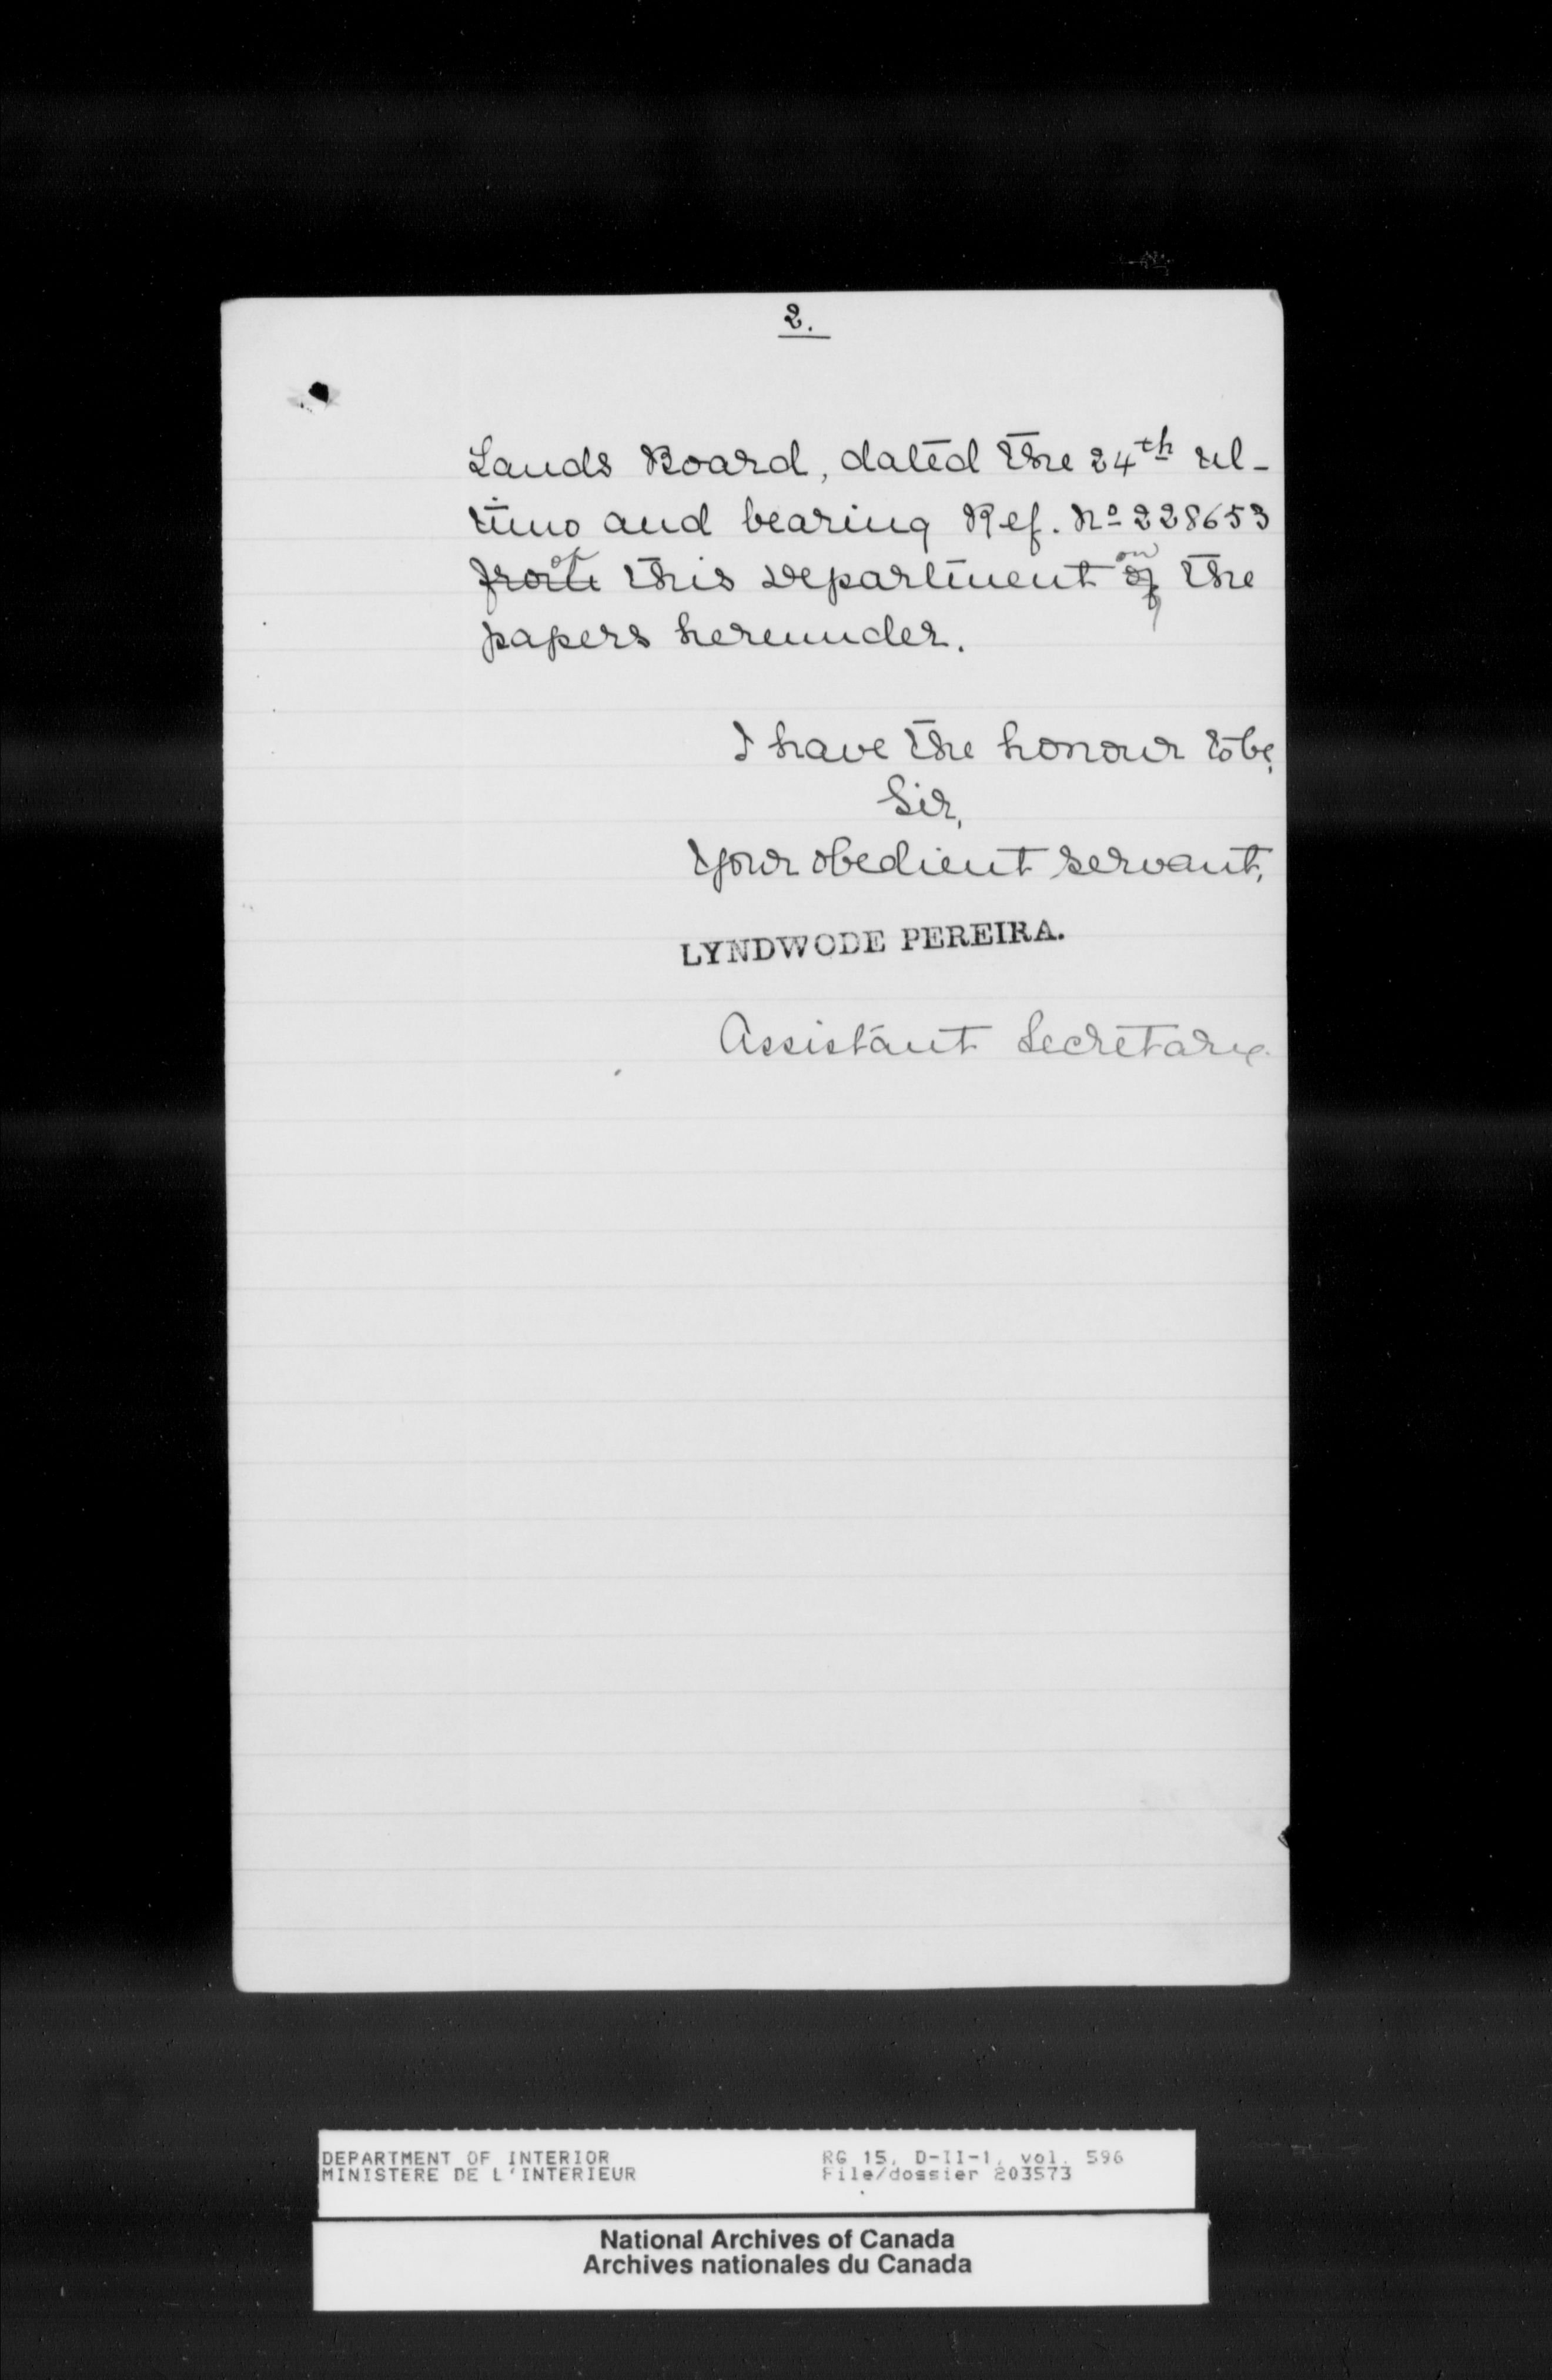 2.
Lands Board, dated the 24th ul-
timo and bearing Ref. No 228653
from of this Department of on the
papers hereunder.
I have the honour to be,
Sir,
Your obedient servant,
LYNDWODE PEREIRA.
Assistant Secretary.
DEPARTMENT OF INTERIOR RG 15, D-II-1, vol. 596
MINISTERE DE L'INTERIEUR File/dossier 203573
National Archives of Canada
Archives nationales du Canada